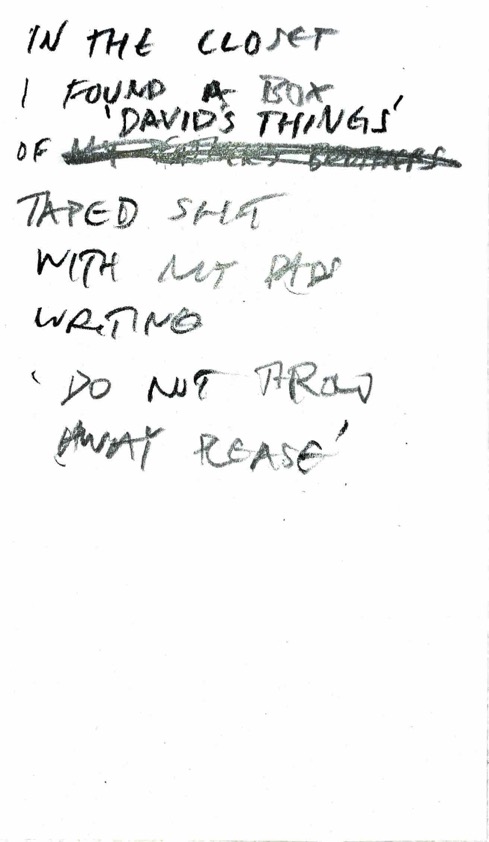 IN THE CLOSET
I FOUND A BOX
'DAVID'S THINGS'
OF
TAPED SHUT
WITH MY DADS
WRITING
'DO NOT THROW
AWAY PLEASE'